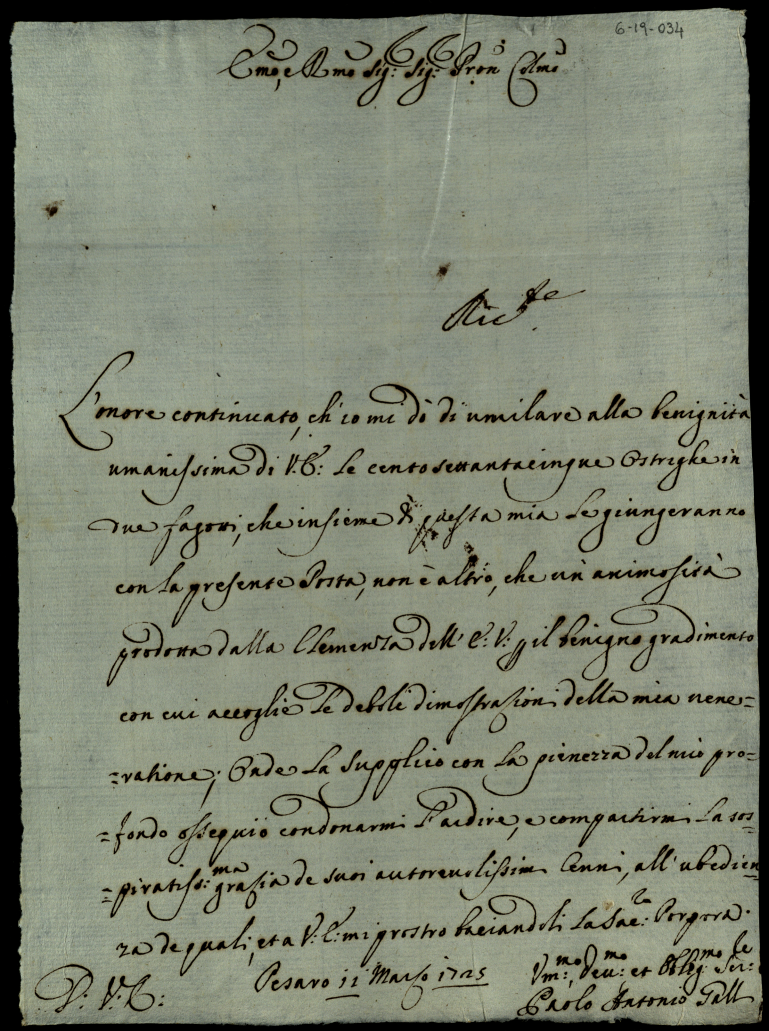 6-19-034
Emo, e Rmo Sig: Sig: Pron Colmo
L'onore continuato, ch'io mi dò di umilare alla benignità
umanissima di V.E: le centosettantacinque Ostrighe in
due fagotti, che insieme questa mia le giungeranno
con la presente Posta, non è altro, che un'animosità
prodotta dalla Clemenza dell'E:V: il benigno gradimento
con cui accoglie le deboli dimostrazioni della mia vene=
=ratione; Onde la supplico con la pienezza del mio pro=
=fondo ossequio condonarmi l'ardire, e compartirmi la sos=
=piratiss:ma grazia de suoi autorevolissimi Cenni, all'ubedien
za de quali, et a V:E: mi prostro baciandoli la Sac:ra Porpora.
D: V: E: Pesaro 11 Marzo 1725 Vm:mo, Dev:mo et Obblig:mo Ser:re
Paolo Antonio Galli